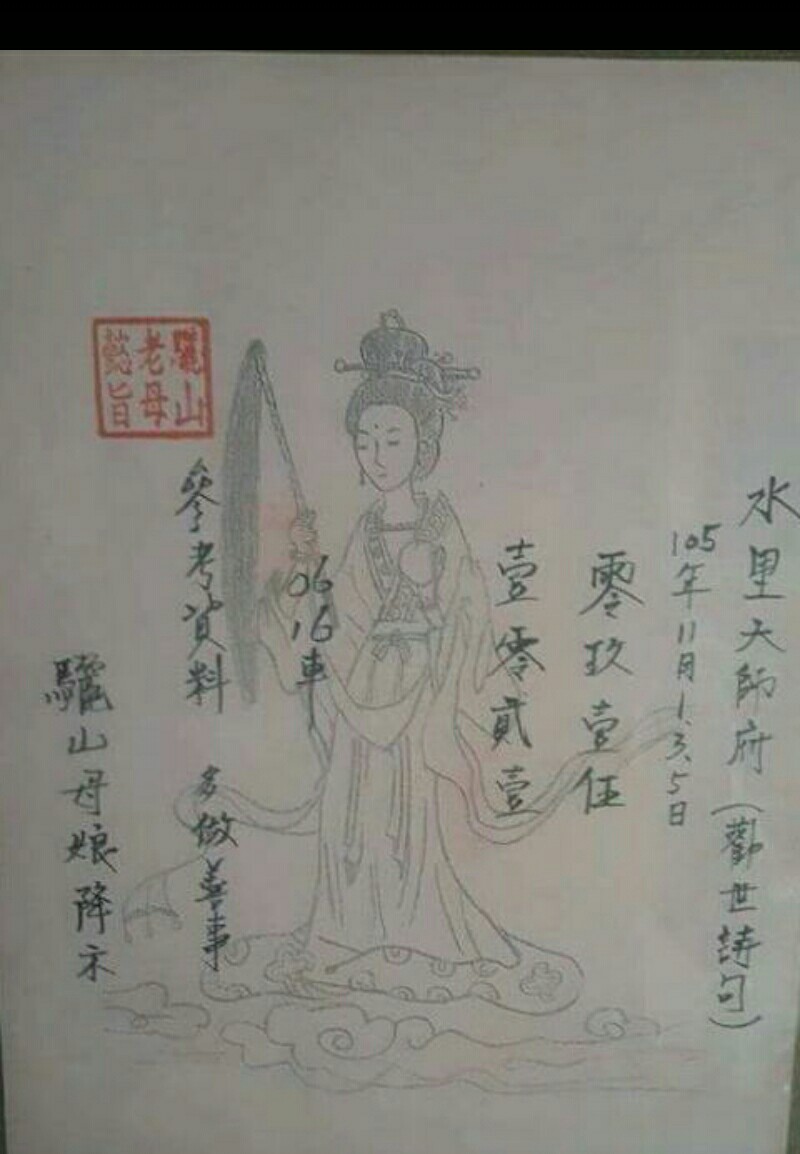 水里天師府（勸世詩句）
105年11月1.3.5日
零玖壹伍
壹零貳壹
06
16車
參考資料
多做善事
驪山母娘降示
驪山
老母
懿旨